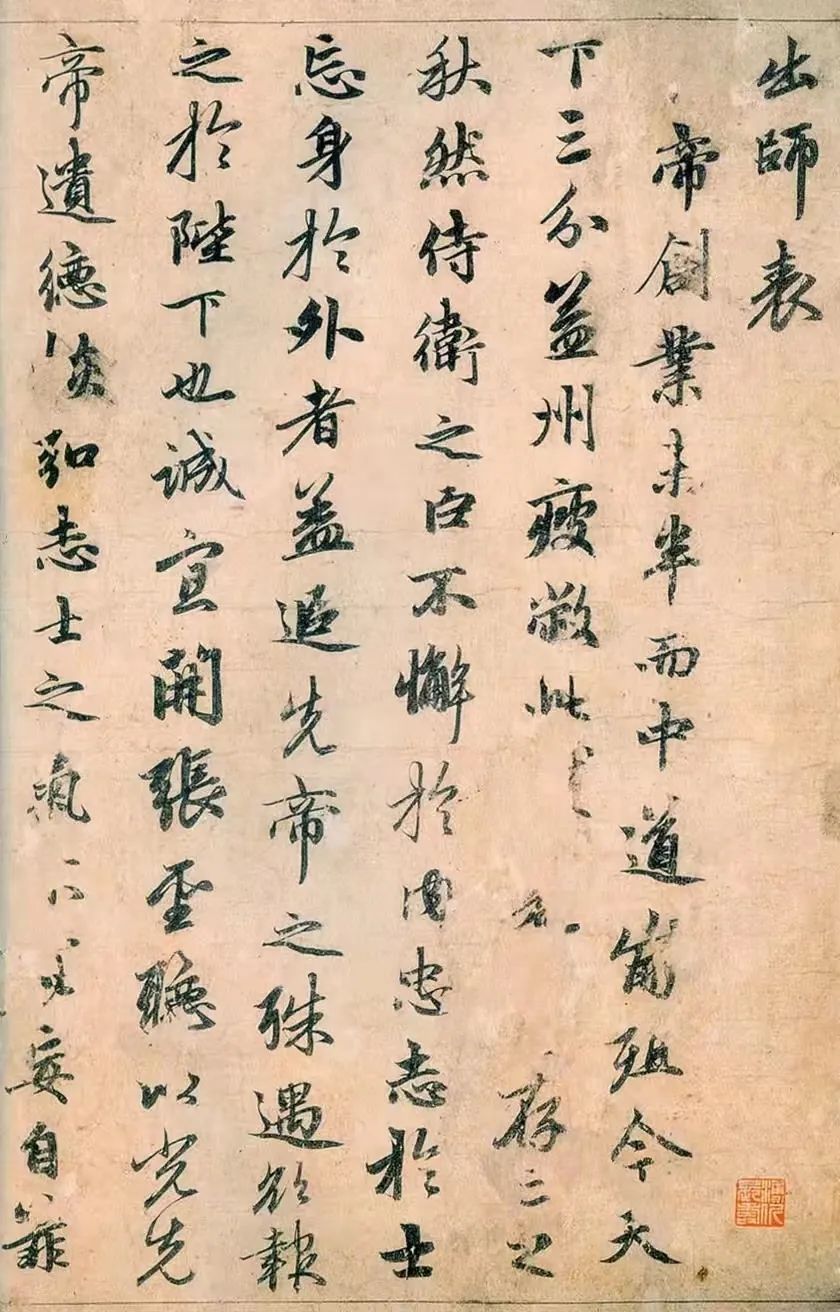 出師表
帝創業未半而中道崩殂今天
下三分益州疲敝此存亡之
秋然侍衛之臣不懈於内忠志於士
忘身於外者盖追先帝之殊遇欲報
之於陛下也誠宜開張聖聽以光先
帝遺德恢弘志士之氣不妄自菲